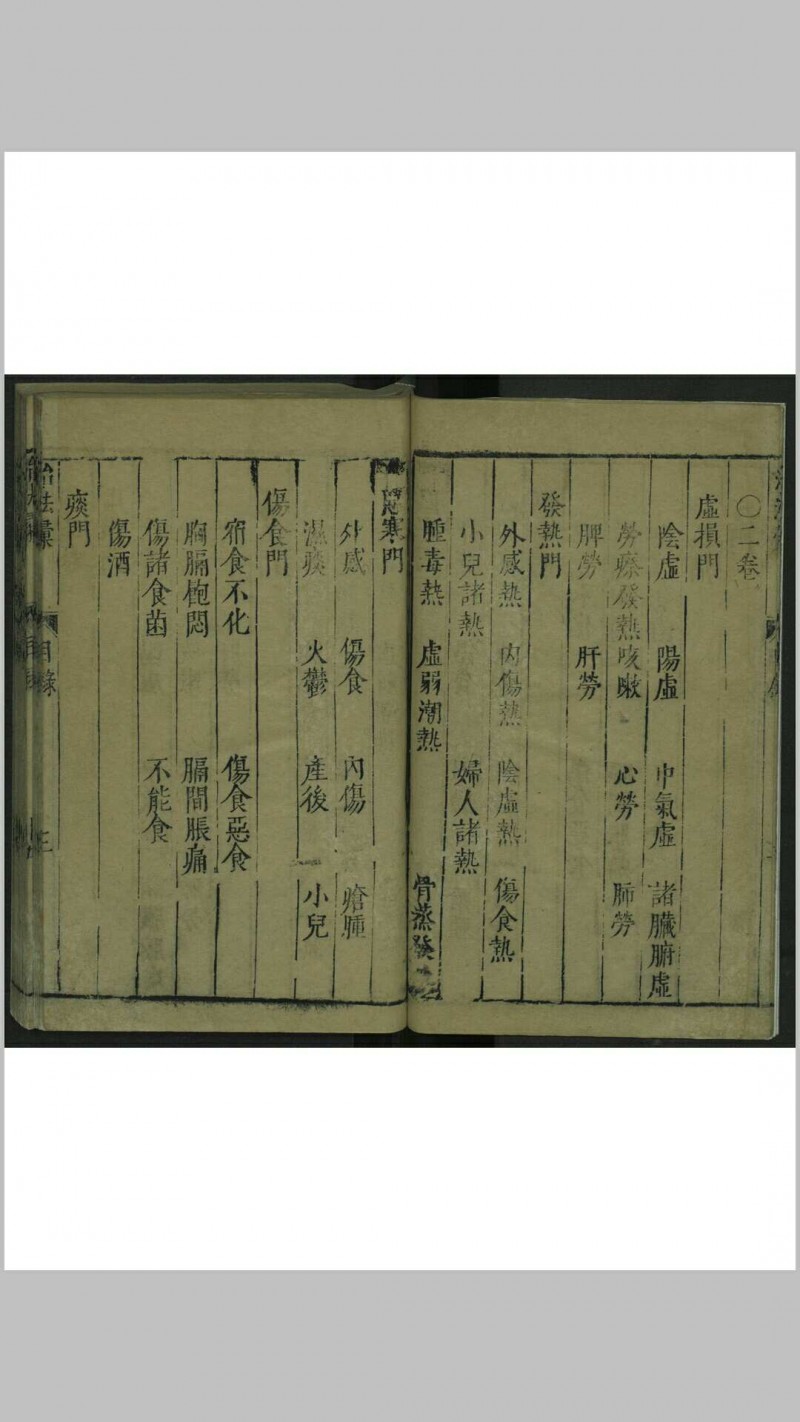 〇二卷
虛損門
陰虛　陽虛　中氣虛　諸臟腑虛
勞瘵發熱咳嗽　心勞　肺勞
脾勞　肝勞
發熱門
外感熱　內傷熱　陰虛熱　傷食熱
小兒諸熱　婦人諸熱
腫毒熱　虛弱潮熱　骨蒸發
惡寒門
外感　傷食　內傷　瘡腫
濕痰　火鬱　產後　小兒
傷食門
宿食不化　傷食惡食
胸膈枹悶　膈間脹痛
傷諸食菌　不能食
傷酒
痰門
治法彙　目錄　三